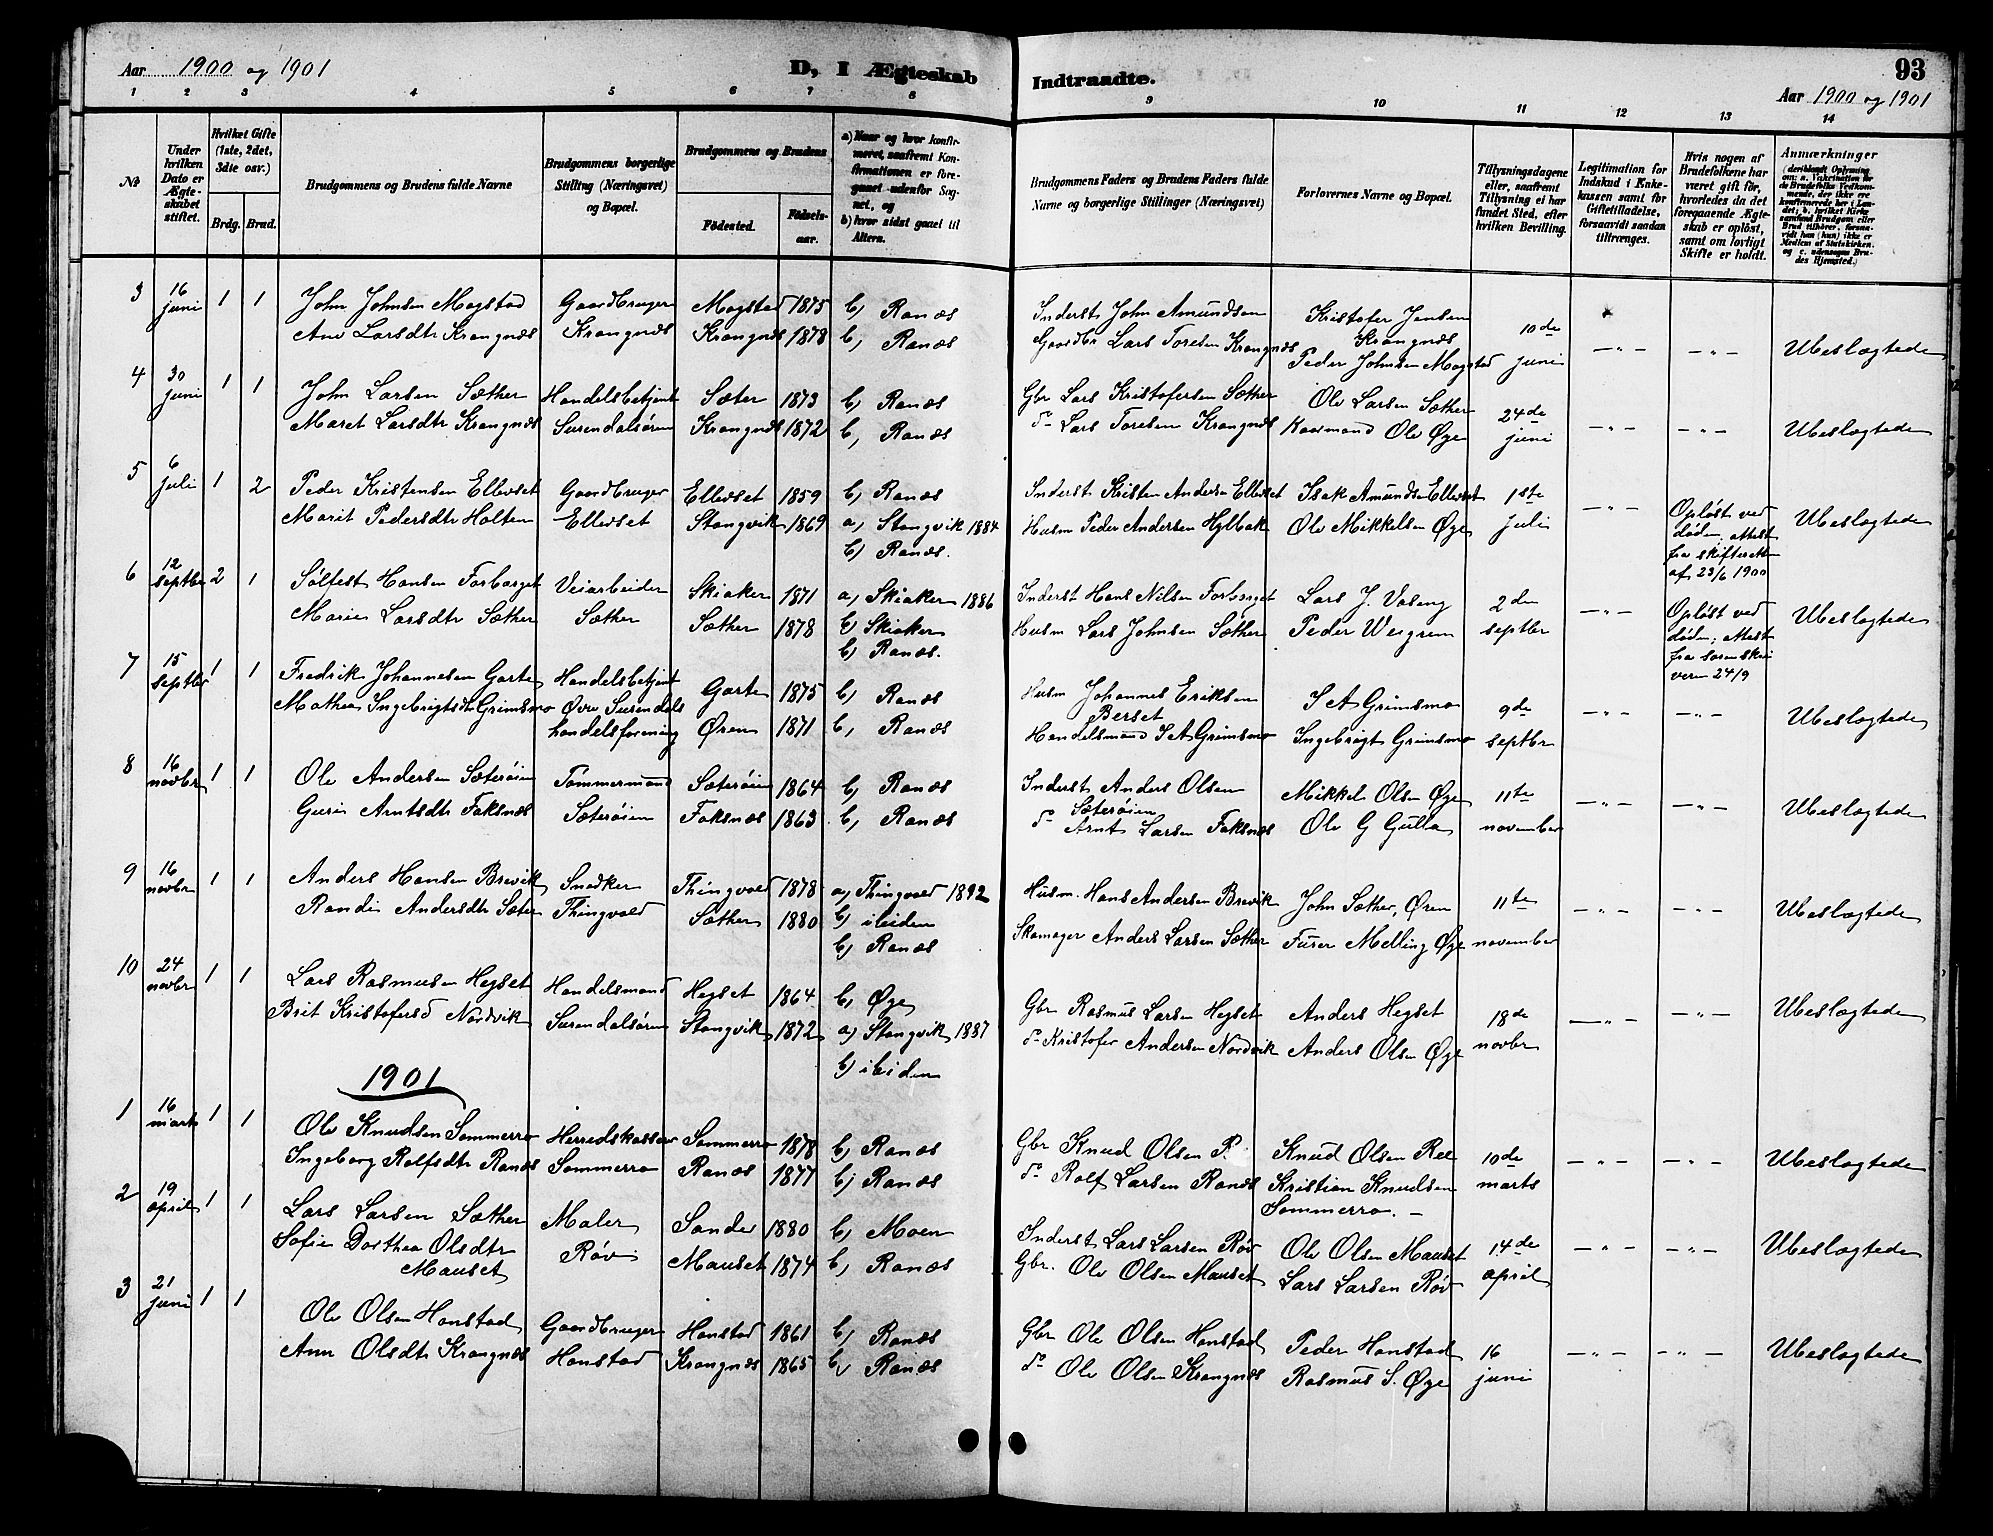 Aar 1900 og 1901
D, I Ægteskab Indtraadte.
93
Aar 1900 og 1901
1 2 3 4 5 6 7 8 9 10 11 12 13 14
No
Under hvilken Dato er Ægteskabet stiftet.
Hvilket Gifte (1ste, 2det, 3die osv.)
Brdg. Brud.
Brudgommens og Brudens fulde Navne
Brudgommens borgerlige Stilling (Næringsvei) og Bopæl.
Brudgommens og Brudens
Födested. Födselsaar.
a) Naar og hvor konfirmeret, saafremt Konfirmationen er foregaaet udenfor Sognet, og
b) hvor sidst gaaet til Alters.
Brudgommens Faders og Brudens Faders fulde Navne og borgerlige Stillinger (Næringsvei)
Forlovernes Navne og Bopæl.
Tillysningsdagene eller, saafremt Tillysning ei har fundet Sted, efter hvilken Bevilling.
Legitimation for Indskud i Enkekassen samt for Giftetilladelse, forsaavidt saadan tiltrænges.
Hvis nogen af Brudefolkene har været gift för, hvorledes da det foregaaende Ægteskab er oplöst, samt om lovligt Skifte er holdt.
Anmærkninger
3 16 juni 1 1 John Johnsen Mogstad Gaardbruger Mogstad 1875 b) Ranæs Inderst John Amundsen Kristofer Jensen Krangnæs 10de juni — " — — " — Ubeslægtede
Ane Larsdtr Krangnæs Krangnæs Krangnæs 1878 b) Ranæs Gaardbr Lars Toresen Krangnæs Peder Johnsen Mogstad
4 30 juni 1 1 John Larsen Sæther Handelsbetjent Sæter 1873 b) Ranæs Gbr Lars Kristofersen Sæther Ole Larsen Sæther 24de juni — " — — " — Ubeslægtede
Maret Larsdtr Krangnæs Surendalsøren Krangnæs 1872 b) Ranæs do Lars Toresen Krangnæs Ole Øye
5 6 juli 1 2 Peder Kristensen Ellevset Gaardbruger Ellevset 1859 b) Ranæs Inderst Kristen Anders Ellevset Isak Amundsen Ellevset 1ste juli — " — Opløst ved døden, Attest fra skifteretten af 23/6 1900 Ubeslægtede
Marit Pedersdtr Holten Ellevset Stangvik 1869 a) Stangvik 1884 Husm Peder Andersen Hylbak Ole Mikkelsen Øye
b) Ranæs.
6 12 septbr 2 1 Sølfest Hansen Forbørget Veiarbeider Skiaker 1871 a) Skiaker 1886 Inderst Hans Nilsen Forbørget Lars J. Vaseng 2den septbr — " — Opløst ved døden; Attest fra sorenskriveren 24/9 Ubeslægtede
Marie Larsdtr Sæther Sæther Sæther 1878 b) Skiaker Husm Lars Johnsen Sæther Peder Weigrem
b) Ranæs.
7 15 septbr 1 1 Fredrik Johannesen Garte Handelsbetjent Garte 1875 b) Ranæs Husm Johannes Eriksen Berset I A Grimsmo 9de septbr — " — — " — Ubeslægtede
Mathea Ingebrigtsdtr Grimsmo Øvre Surendals handelsforening Øren 1871 b) Ranæs Handelsmand I A Grimsmo Ingebrigt Grimsmo
8 16 novbr 1 1 Ole Andersen Sæterøien Tømmermand Sæterøien 1864 b) Ranæs Inderst Anders Olsen Sæterøien Mikkel Olsen Øye 11te november — " — — " — Ubeslægtede
Guri Arntsdtr Foksnæs Sæterøien Foksnæs 1863 b) Ranæs do Arnt Larsen Foksnæs Ole G Gulla
9 16 novbr 1 1 Anders Hansen Brevik Snedker Thingvold 1878 a) Thingvold 1892 Husm. Hans Andersen Brevik John Sæther, Øren 11te november — " — — " — Ubeslægtede
Randi Andersdtr Sæter Thingvold Sæther 1880 b) ibiden Skomager Anders Larsen Sæther Melling Øye
b) Ranæs
10 24 novbr 1 1 Lars Rasmusen Hegset Handelsmand Hegset 1864 b) Øye Gbr Rasmus Larsen Hegset Anders Hegset 18de novbr — " — — " — Ubeslægtede
Brit Kristofersd Nordvik Surendalsøren Stangvik 1872 a) Stangvik 1887 do Kristofer Andersen Nordvik Anders Olsen Øye
b) ibiden
1901
1 16 marts 1 1 Ole Knudsen Sommerro Herredskasserer Sommerro 1878 b) Ranæs Gbr Knud Olsen Knud Olsen Ree 10de marts — " — — " — Ubeslægtede
Ingeborg Rolfsdtr Ranæs Sommerro Ranæs 1877 b) Ranæs do Rolf Larsen Ranæs Kristian Knudsen Sommerro. —
2 19 april 1 1 Lars Larsen Sæther Maler Sande 1880 b) Moen Inderst Lars Larsen Røv Ole Olsen Mauset 14de april — " — — " — Ubeslægtede
Sofie Dorthea Olsdtr Mauset Røv Mauset 1874 b) Ranæs Gbr. Ole Olsen Mauset Lars Larsen Røv
3 21 juni 1 1 Ole Olsen Honstad Gaardbruger Honstad 1861 b) Ranæs Gbr Ole Olsen Honstad Peder Honstad 16 juni — " — — " — Ubeslægtede
Ane Olsdtr Krangnæs Honstad Krangnæs 1865 b) Ranæs do Ole Olsen Krangnæs Rasmus S. Øye